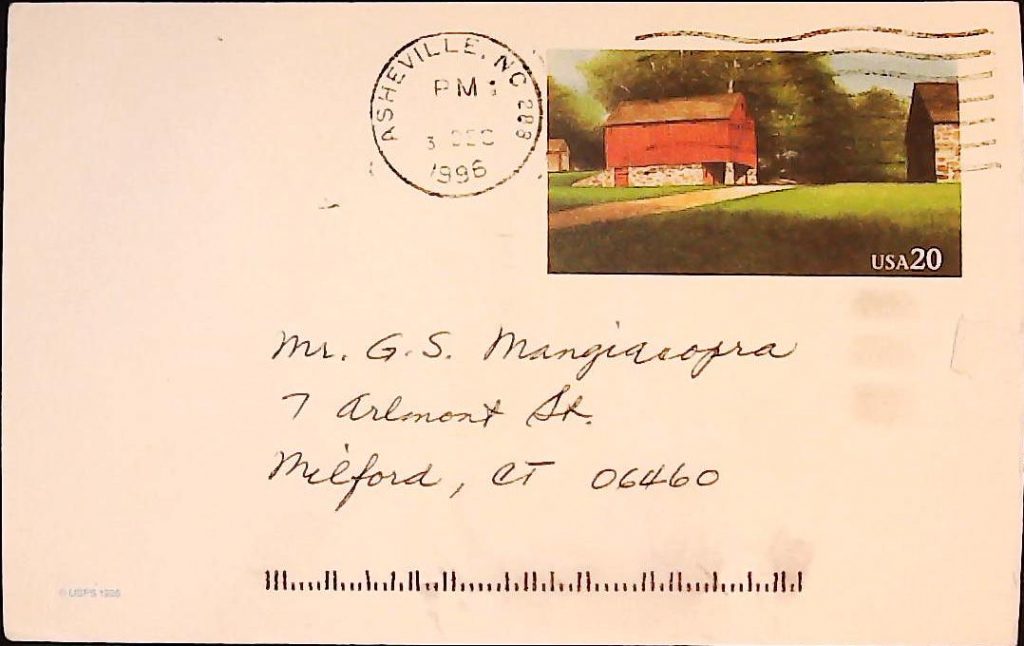 ASHEVILLE, NC 288
PM
3 DEC
1996
USA20
Mr. G. S. Mangiacopra
7 Arlmont St.
Milford, CT 06460
© USPS 1995